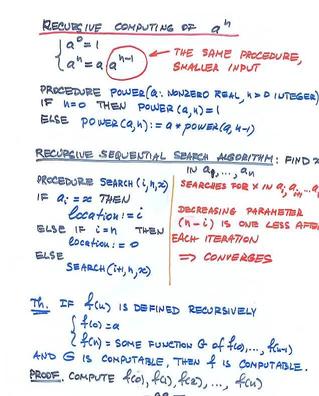 RECURSIVE COMPUTING OF aⁿ
{ a⁰ = 1
{ aⁿ = a · aⁿ⁻¹
← THE SAME PROCEDURE,
SMALLER INPUT
PROCEDURE POWER(a: NONZERO REAL, n>0 INTEGER)
IF n=0 THEN POWER(a,n)=1
ELSE POWER(a,n):= a * POWER(a,n-1)
RECURSIVE SEQUENTIAL SEARCH ALGORITHM: FIND x
IN a₀,...,aₙ
PROCEDURE SEARCH(i,n,x)
IF aᵢ = x THEN
location:= i
ELSE IF i=n THEN
location:= 0
ELSE
SEARCH(i+1,n,x)
SEARCHES FOR x IN aᵢ, aᵢ₊₁...a
DECREASING PARAMETER
(n-i) IS ONE LESS AFTE
EACH ITERATION
⇒ CONVERGES
Th. IF f(n) IS DEFINED RECURSIVELY
{ f(0)=a
{ f(n) = SOME FUNCTION G OF f(0),...,f(n-1)
AND G IS COMPUTABLE, THEN f IS COMPUTABLE.
PROOF. COMPUTE f(0), f(1), f(2), ..., f(n)